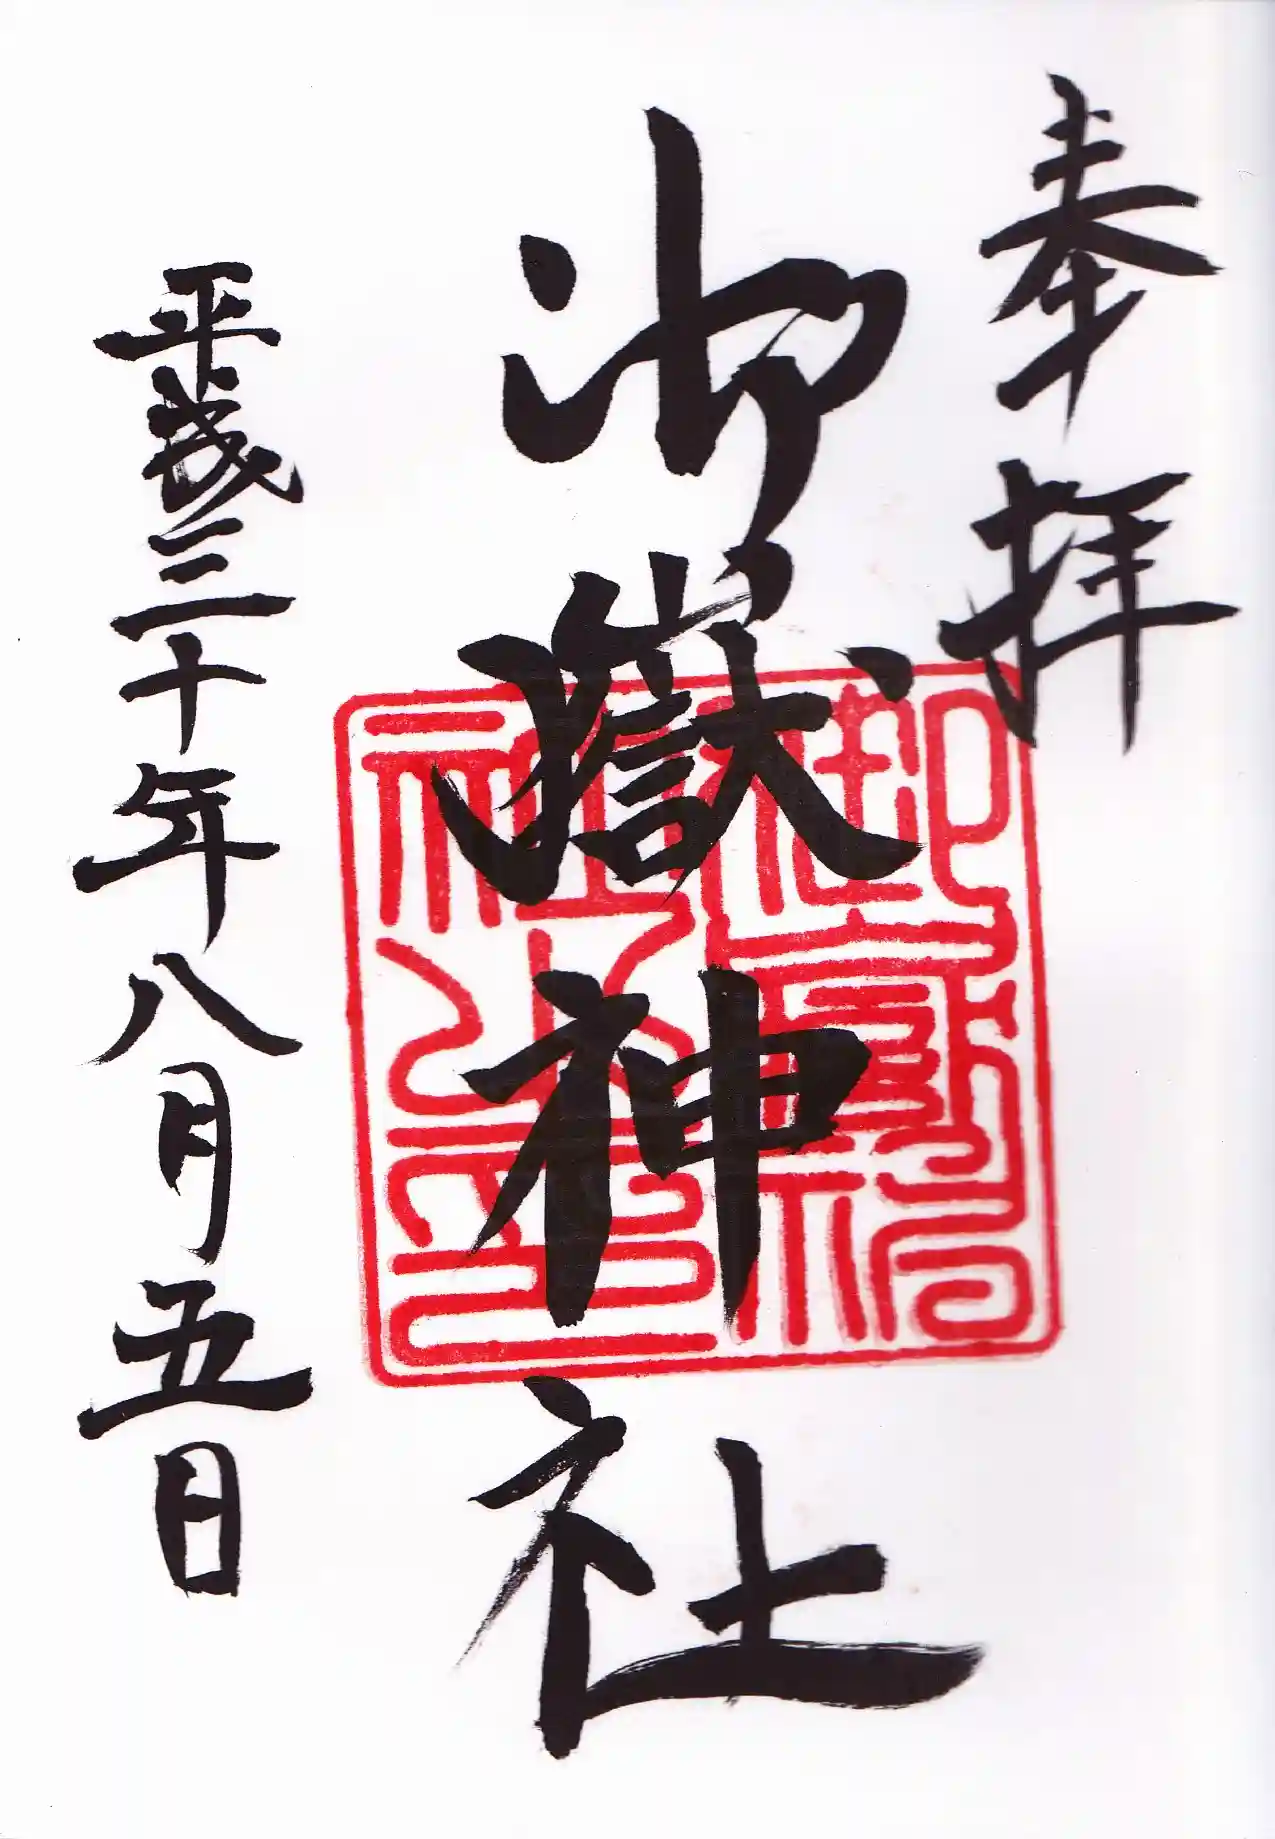 奉拝
御嶽神社
平成三十年八月五日